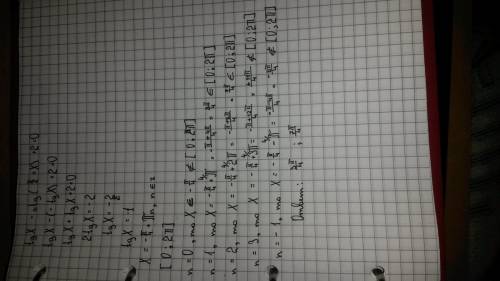 tg X - ctg (π/2 + X) + 2 = 0
tg X - (- tg X) + 2 = 0
tg X + tg X + 2 = 0
2 tg X = - 2
tg X = - 2/2
tg X = - 1
X = - π/4 + πn, n ∈ z
[0 ; 2π]
n = 0, то X = - π/4 ∉ [0 ; 2π]
n = 1, то X = - π/4 + π = -π+4π/4 = 3π/4 ∈ [0 ; 2π]
n = 2, то X = - π/4 + 2π = -π+8π/4 = 7π/4 ∈ [0 ; 2π]
n = 3, то X = - π/4 + 3π = -π+12π/4 = 11π/4 ∉ [0 ; 2π]
n = - 1, то X = - π/4 - π = -π-4π/4 = -5π/4 ∉ [0 ; 2π]
Ответ: 3π/4 ; 7π/4